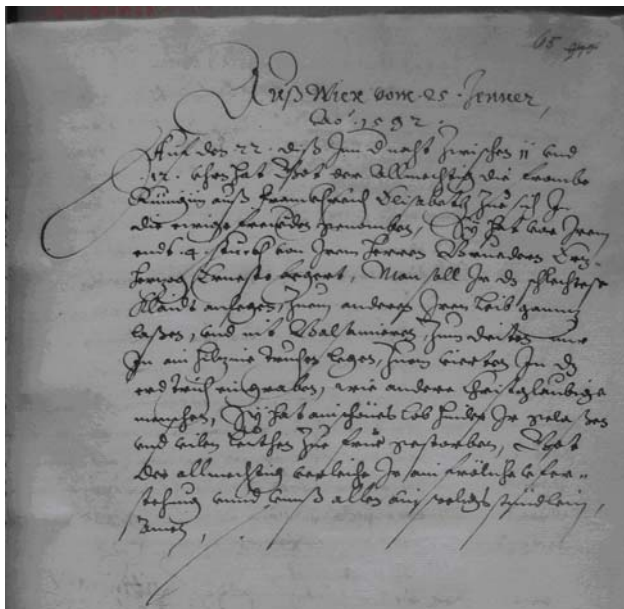 65
Auß Wien vom .25. Jenner,
Ao. 1592.
Auf den 22. diß Inn d nacht zwischen 11 und
.12. uhrn hat Gott der Allmechtig die frombe
Künigin auß Frankhreich Elisabeth zue sich In
die ewige freuden genomben, Sy hat vor Irem
ends .4. stuckh von Irem herren Bruedern Erz-
herzog Ernesto begert, Man soll Ir dz schlechteste
Klaidt anlegen, zum anderen Iren leib gannz
laßen, und nit Balsamieren, zum dritten nur
In ain hilzene truhen legen, zum vierten In dz
erdtrich eingraben, wie andere Christglaubige
menschen, Sy hat ain schönes lob hinder Ir gelaßen
und vilen leuthen zue frue gestorben, Gott
der allmechtig verleihe Ir ain fröliche aufer-
stehung unnd unnß allen ain seeligs stündlein,
Amen,